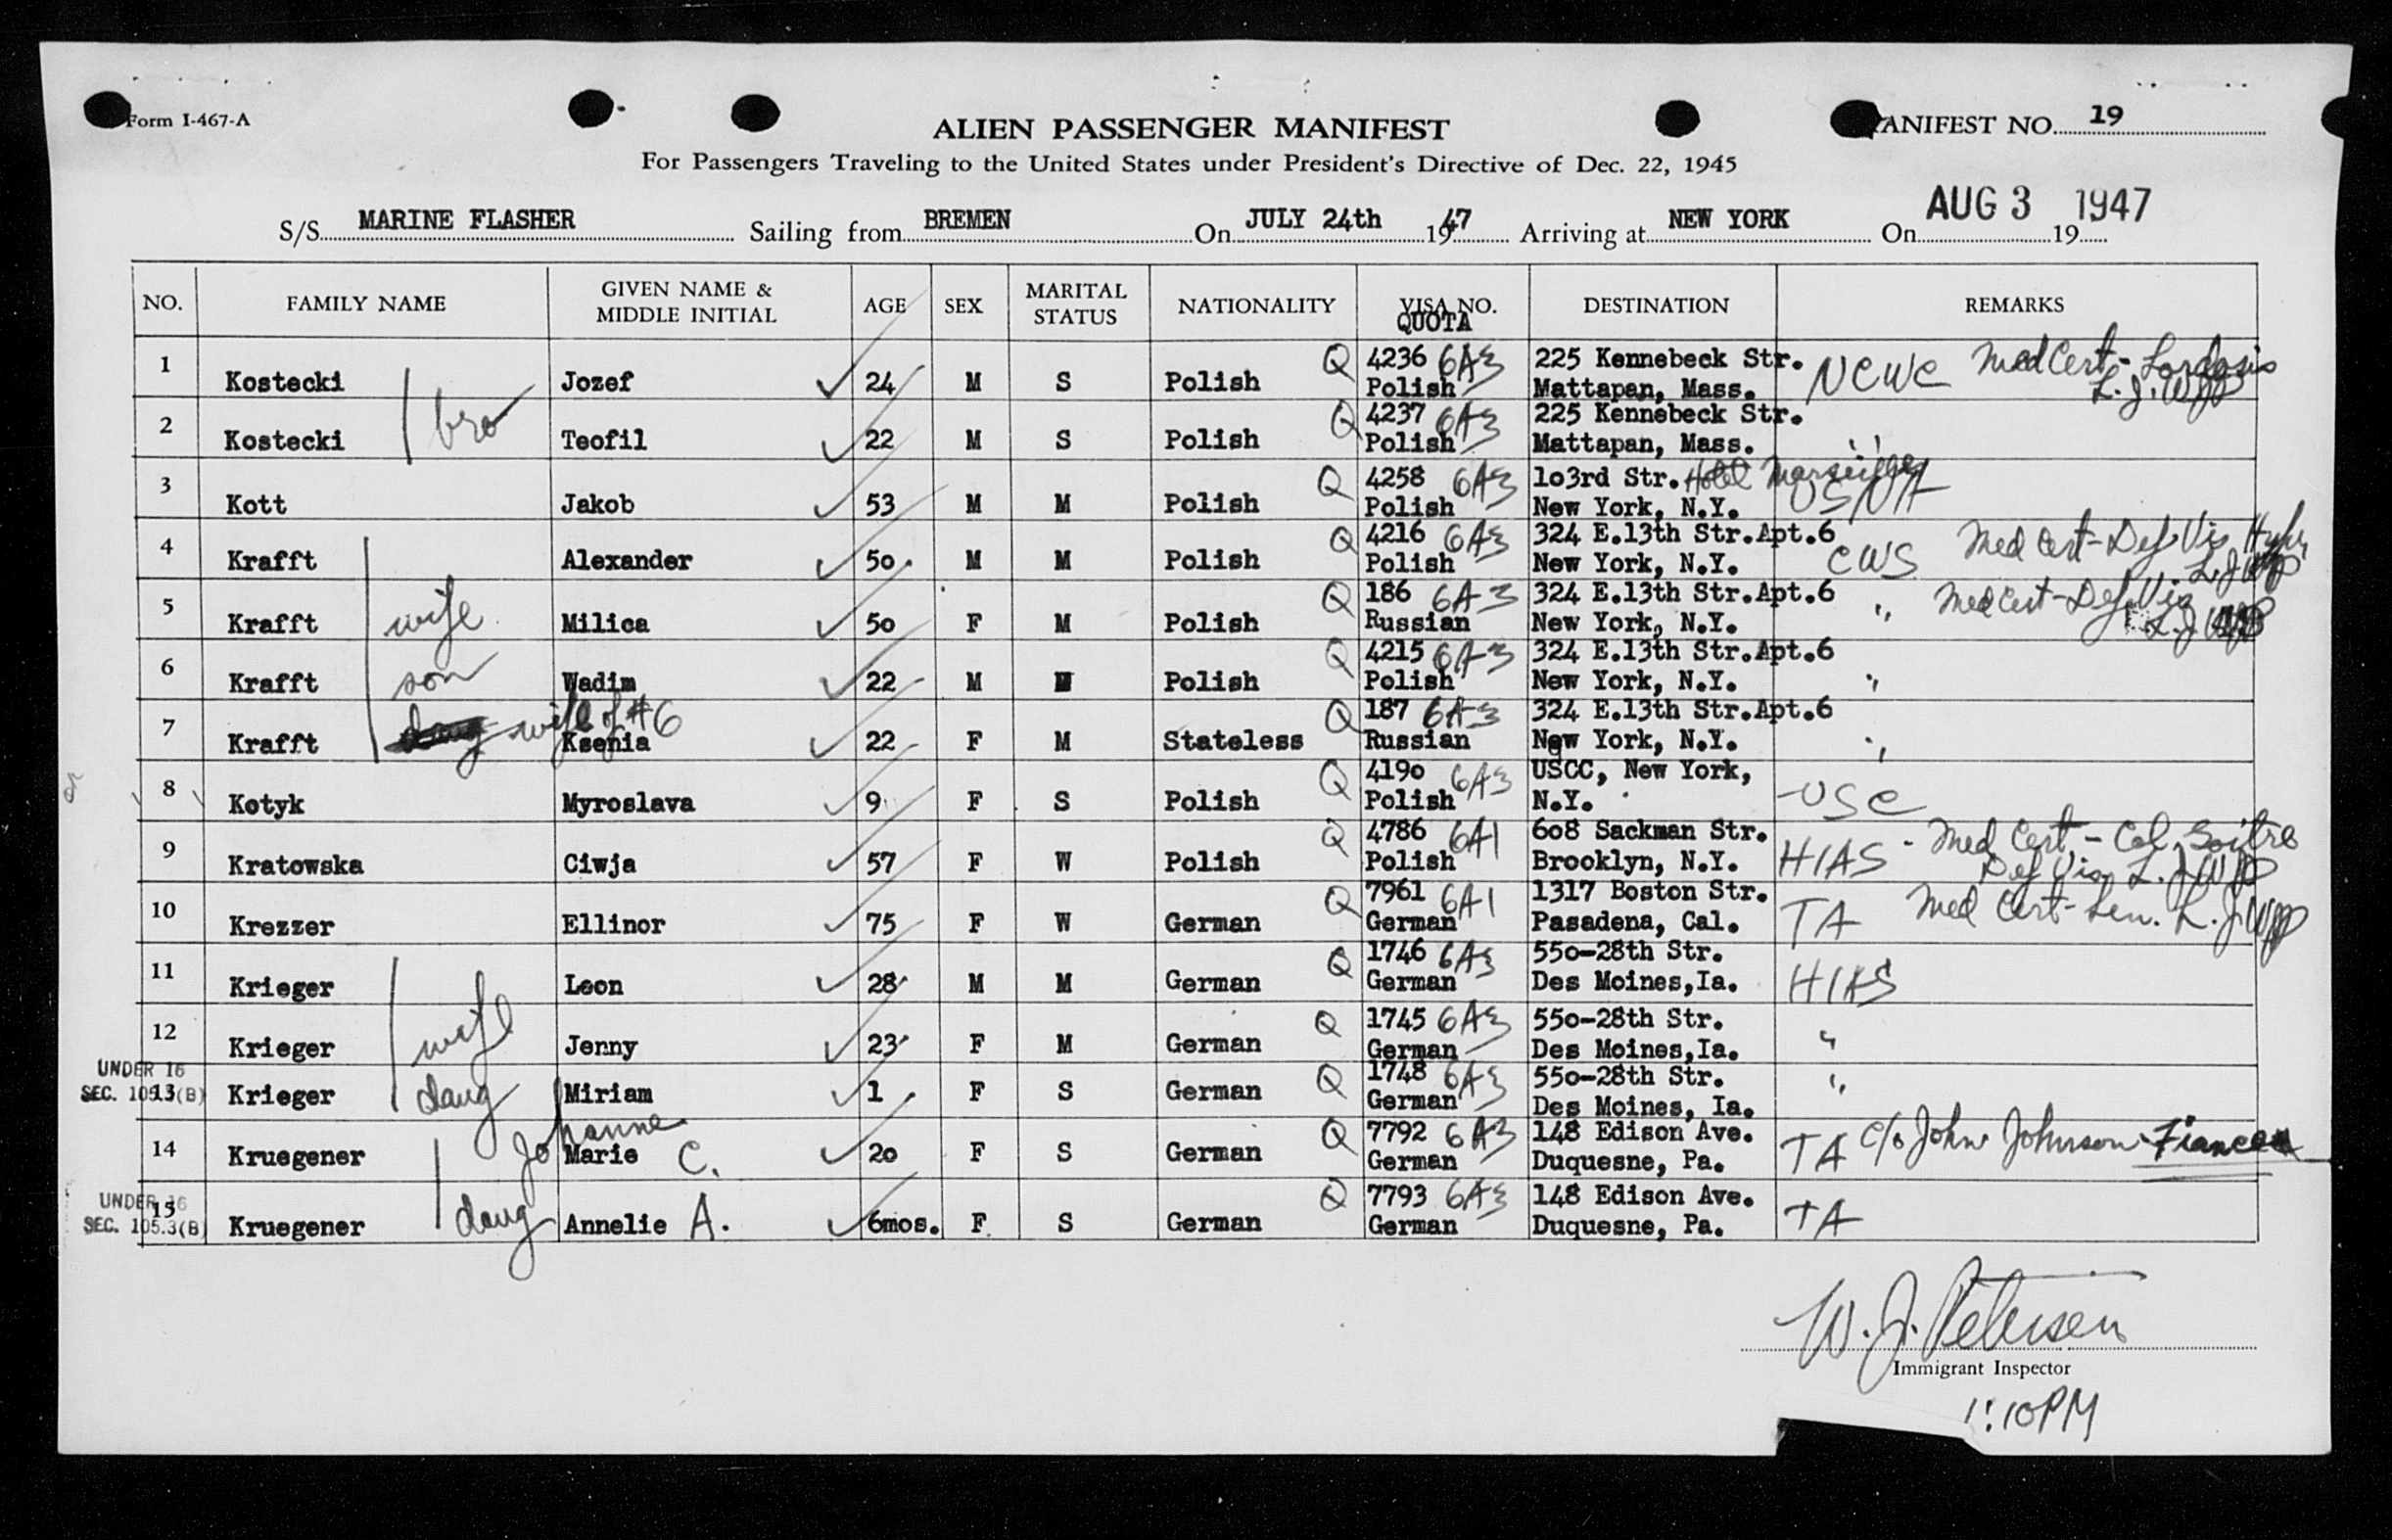 Form I-467-A
ALIEN PASSENGER MANIFEST
ANIFEST NO. 19
For Passengers Traveling to the United States under President's Directive of Dec. 22, 1945
S/S MARINE FLASHER Sailing from BREMEN On JULY 24th 1947 Arriving at NEW YORK On AUG 3 1947 19
NO. FAMILY NAME GIVEN NAME & MIDDLE INITIAL AGE SEX MARITAL STATUS NATIONALITY VISA NO. QUOTA DESTINATION REMARKS
1 Kostecki Jozef 24 M S Polish Q 4236 6A3 225 Kennebeck Str. NCWC Med Cert - Lordosis
Polish Mattapan, Mass. L.J.
2 Kostecki bro Teofil 22 M S Polish Q 4237 6A3 225 Kennebeck Str. "
Polish Mattapan, Mass.
3 Kott Jakob 53 M M Polish Q 4258 6A3 1o3rd Str. Hotel Marseilles
Polish New York, N.Y. USNA
4 Krafft Alexander 5o. M M Polish Q 4216 6A3 324 E.13th Str.Apt.6 CWS Med Cert - Def Vis
Polish New York, N.Y. L.J.
5 Krafft wife Milica 5o F M Polish Q 186 6A3 324 E.13th Str.Apt.6 " Med Cert - Def Vis
Russian New York, N.Y. L.J.
6 Krafft son Wadim 22 M M Polish Q 4215 6A3 324 E.13th Str.Apt.6 "
Polish New York, N.Y.
7 Krafft daug wife of #6 Ksenia 22 F M Stateless Q 187 6A3 324 E.13th Str.Apt.6 "
Russian New York, N.Y.
8 Kotyk Myroslava 9 F S Polish Q 419o 6A3 USCC, New York, USC
Polish N.Y.
9 Kratowska Ciwja 57 F W Polish Q 4786 6A1 6o8 Sackman Str. HIAS - Med Cert - Col. Goitre
Polish Brooklyn, N.Y. Def Vis L.J.
10 Krezzer Ellinor 75 F W German Q 7961 6A1 1317 Boston Str. TA Med Cert - Sen. L.J.
German Pasadena, Cal.
11 Krieger Leon 28 M M German Q 1746 6A3 55o-28th Str. HIAS
German Des Moines,Ia.
12 Krieger wife Jenny 23 F M German Q 1745 6A3 55o-28th Str. "
German Des Moines,Ia.
UNDER 16
SEC. 105.3(B) 13 Krieger daug Miriam 1 F S German Q 1748 6A3 55o-28th Str. "
German Des Moines, Ia.
14 Kruegener Johanne Marie C. 2o F S German Q 7792 6A3 148 Edison Ave. TA c/o John Johnson - Fiancee
German Duquesne, Pa.
UNDER 16
SEC. 105.3(B) 15 Kruegener daug Annelie A. 6mos. F S German Q 7793 6A3 148 Edison Ave. TA
German Duquesne, Pa.
W. J. Petersen
Immigrant Inspector
1:10PM